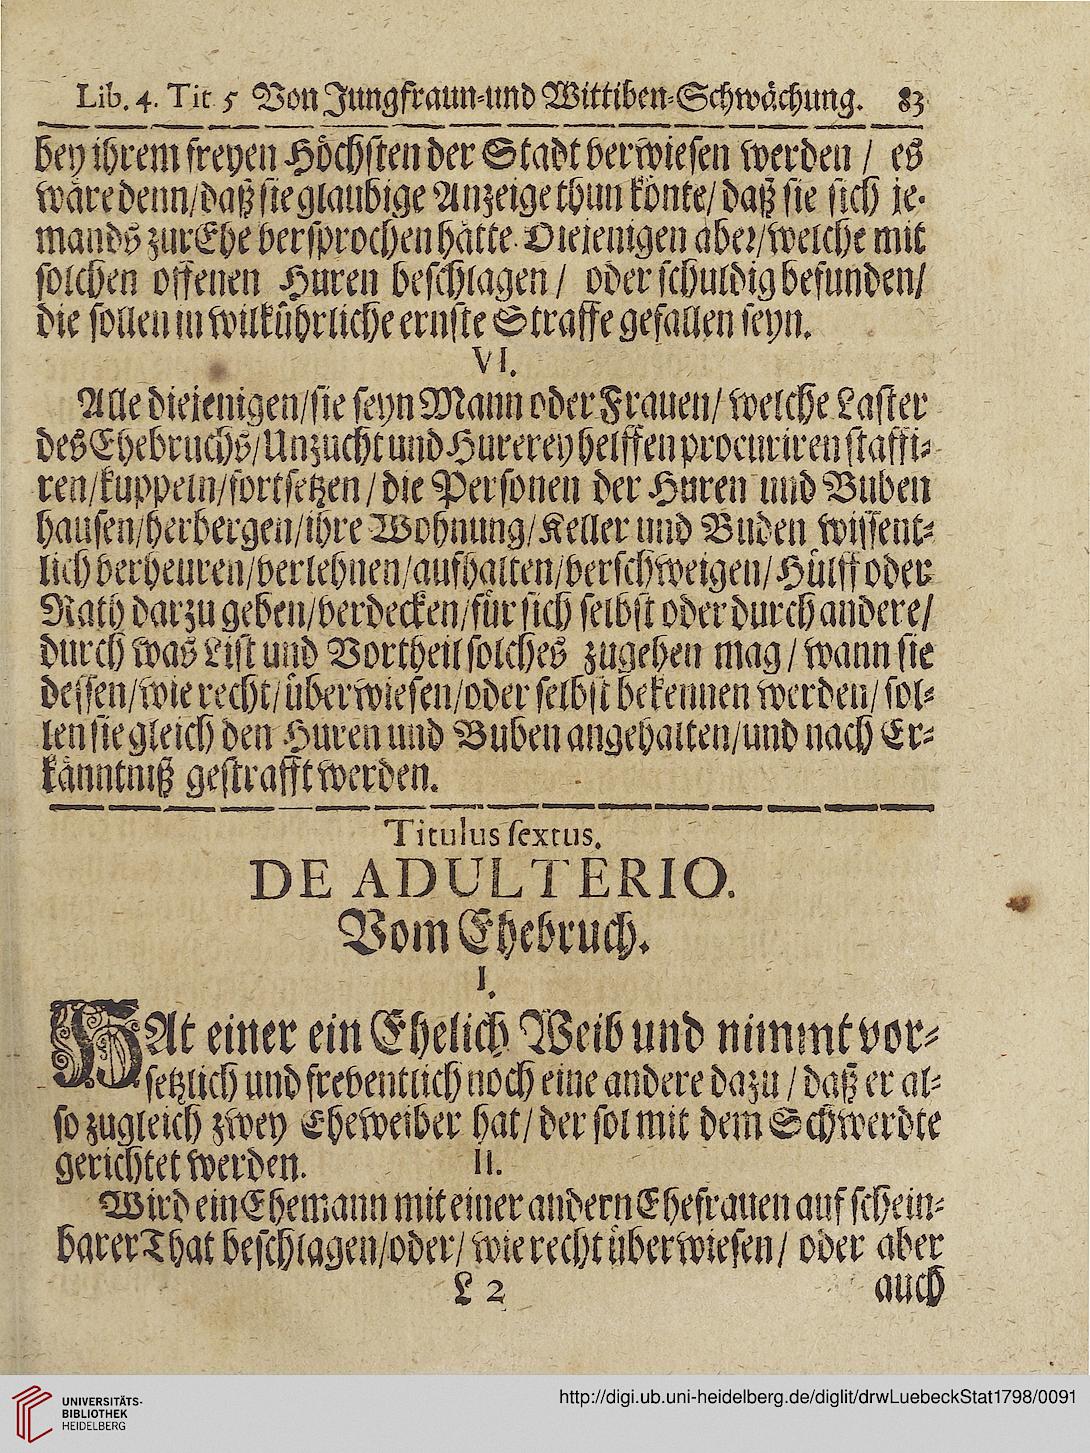 Lib. 4. Tit 5 Von Jungfraun-und Wittiben-Schwächung. 83
bey ihrem freyen Höchsten der Stadt verwiesen werden / es
wäre denn/daß sie glaubige Anzeige thun könte/ daß sie sich je-
mands zur Ehe versprochen hätte. Diejenigen aber/welche mit
solchen offenen Huren beschlagen / oder schuldig befunden/
die sollen in wilkührliche ernste Straffe gefallen seyn.
VI.
Alle diejenigen/sie seyn Mann oder Frauen/ welche Laster
des Ehebruchs/Unzucht und Hurerey helffen procuriren staffi-
ren/kuppeln/fortsetzen / die Personen der Huren und Buben
hausen/herbergen/ihre Wohnung/Keller und Buden wissent-
lich verheuren/verlehnen/aufhalten/verschweigen/ Hülff oder
Rath darzu geben/verdecken/für sich selbst oder durch andere/
durch was List und Vortheil solches zugehen mag / wann sie
dessen/wie recht/überwiesen/oder selbst bekennen werden/ sol-
len sie gleich den Huren und Buben angehalten/und nach Er-
känntniß gestrafft werden.
Titulus sextus.
DE ADULTERIO.
Vom Ehebruch.
I.
HAt einer ein Ehelich Weib und nimmt vor-
setzlich und freventlich noch eine andere dazu / daß er al-
so zugleich zwey Eheweiber hat/ der sol mit dem Schwerdte
gerichtet werden. II.
Wird ein Ehemann mit einer andern Ehefrauen auf schein-
barer That beschlagen/oder/ wie recht überwiesen/ oder aber
L 2 auch
UNIVERSITÄTS-
BIBLIOTHEK
HEIDELBERG
http://digi.ub.uni-heidelberg.de/diglit/drwLuebeckStat1798/0091